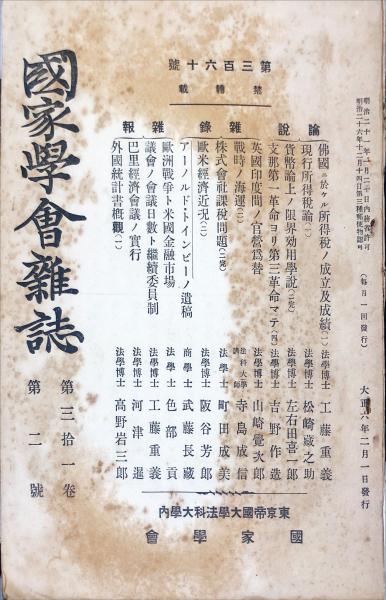 明治二十一年一月二十日内務省許可
明治二十六年十二月十四日第三種郵便物認可
（每月一回發行）
大正六年二月一日發行
第三百六十號
禁轉載
論說
佛國ニ於ケル所得税ノ成立及成績（一） 法學博士 工藤重義
現行所得税論（一） 法學博士 松崎藏之助
貨幣論上ノ限界効用學說（二完） 法學博士 左右田喜一郎
支那第一革命ヨリ第三革命マテ（四） 法學博士 吉野作造
雜錄
英國印度間ノ官營爲替 法學博士 山崎覺次郎
戰時ノ海運（二） 法科大學講師 寺島成信
株式會社課税問題（二完） 法學士 町田成美
歐米經濟近況（二） 法學博士 阪谷芳郎
アーノルド・トインビーノ遺稿 商學士 武藤長藏
雜報
歐洲戰爭ト米國金融市場 法學士 色部貢
議會ノ會議日數ト繼續委員制 法學博士 工藤重義
巴里經濟會議ノ實行 法學博士 河津暹
外國統計書概觀（一） 法學博士 高野岩三郎
東京帝國大學法科大學内
國家學會
國家學會雜誌
第三拾一卷
第二號